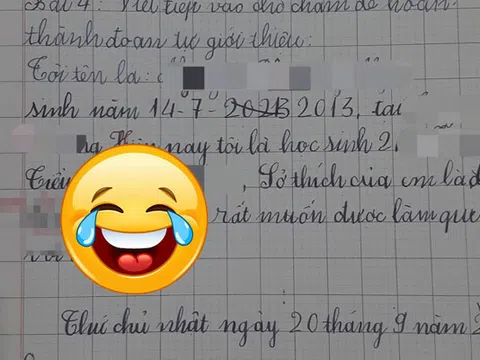 Bài 4: Viết tiếp vào chỗ chấm để hoàn
thành đoạn tự giới thiệu:
Tôi tên là:
sinh năm 14-7-2013,
nay tôi là học sinh 2,
Sở thích của em là
rất muốn được làm que
Thứ chủ nhật ngày 20 tháng 9 năm